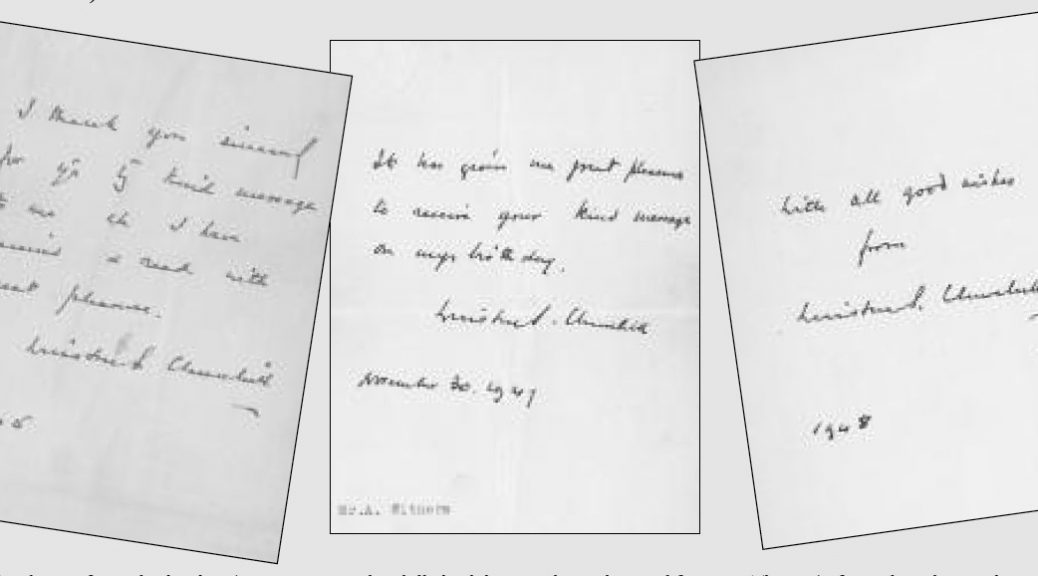 I thank you sincerely
for yr kind message
to me I have
received & read with
great pleasure.
Winston S. Churchill
It has given me great pleasure
to receive your kind message
on my birthday.
Winston S. Churchill
November 30. 1947
Mr.A. Withers
With all good wishes
from
Winston S. Churchill
1948